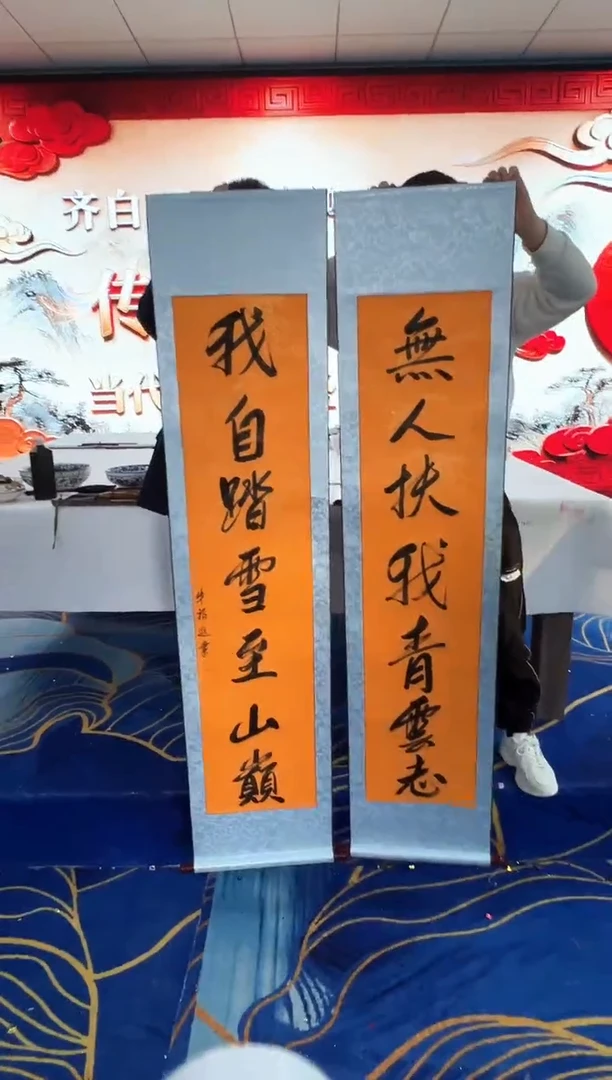 齐白
传
当代
無人扶我青雲志
我自踏雪至山巔